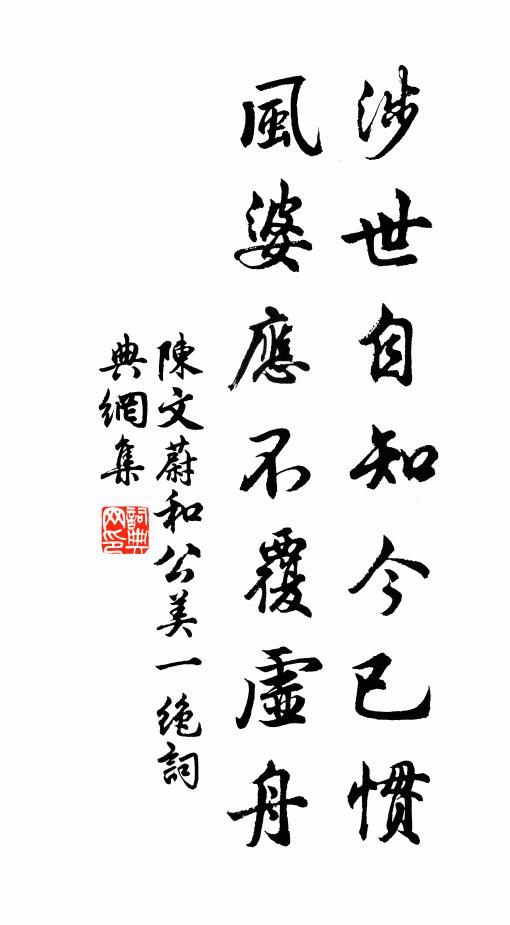 涉世自知今已慣
風婆應不覆虛舟
陳文蔚和公美一絶詞
典網集
詞典
网印